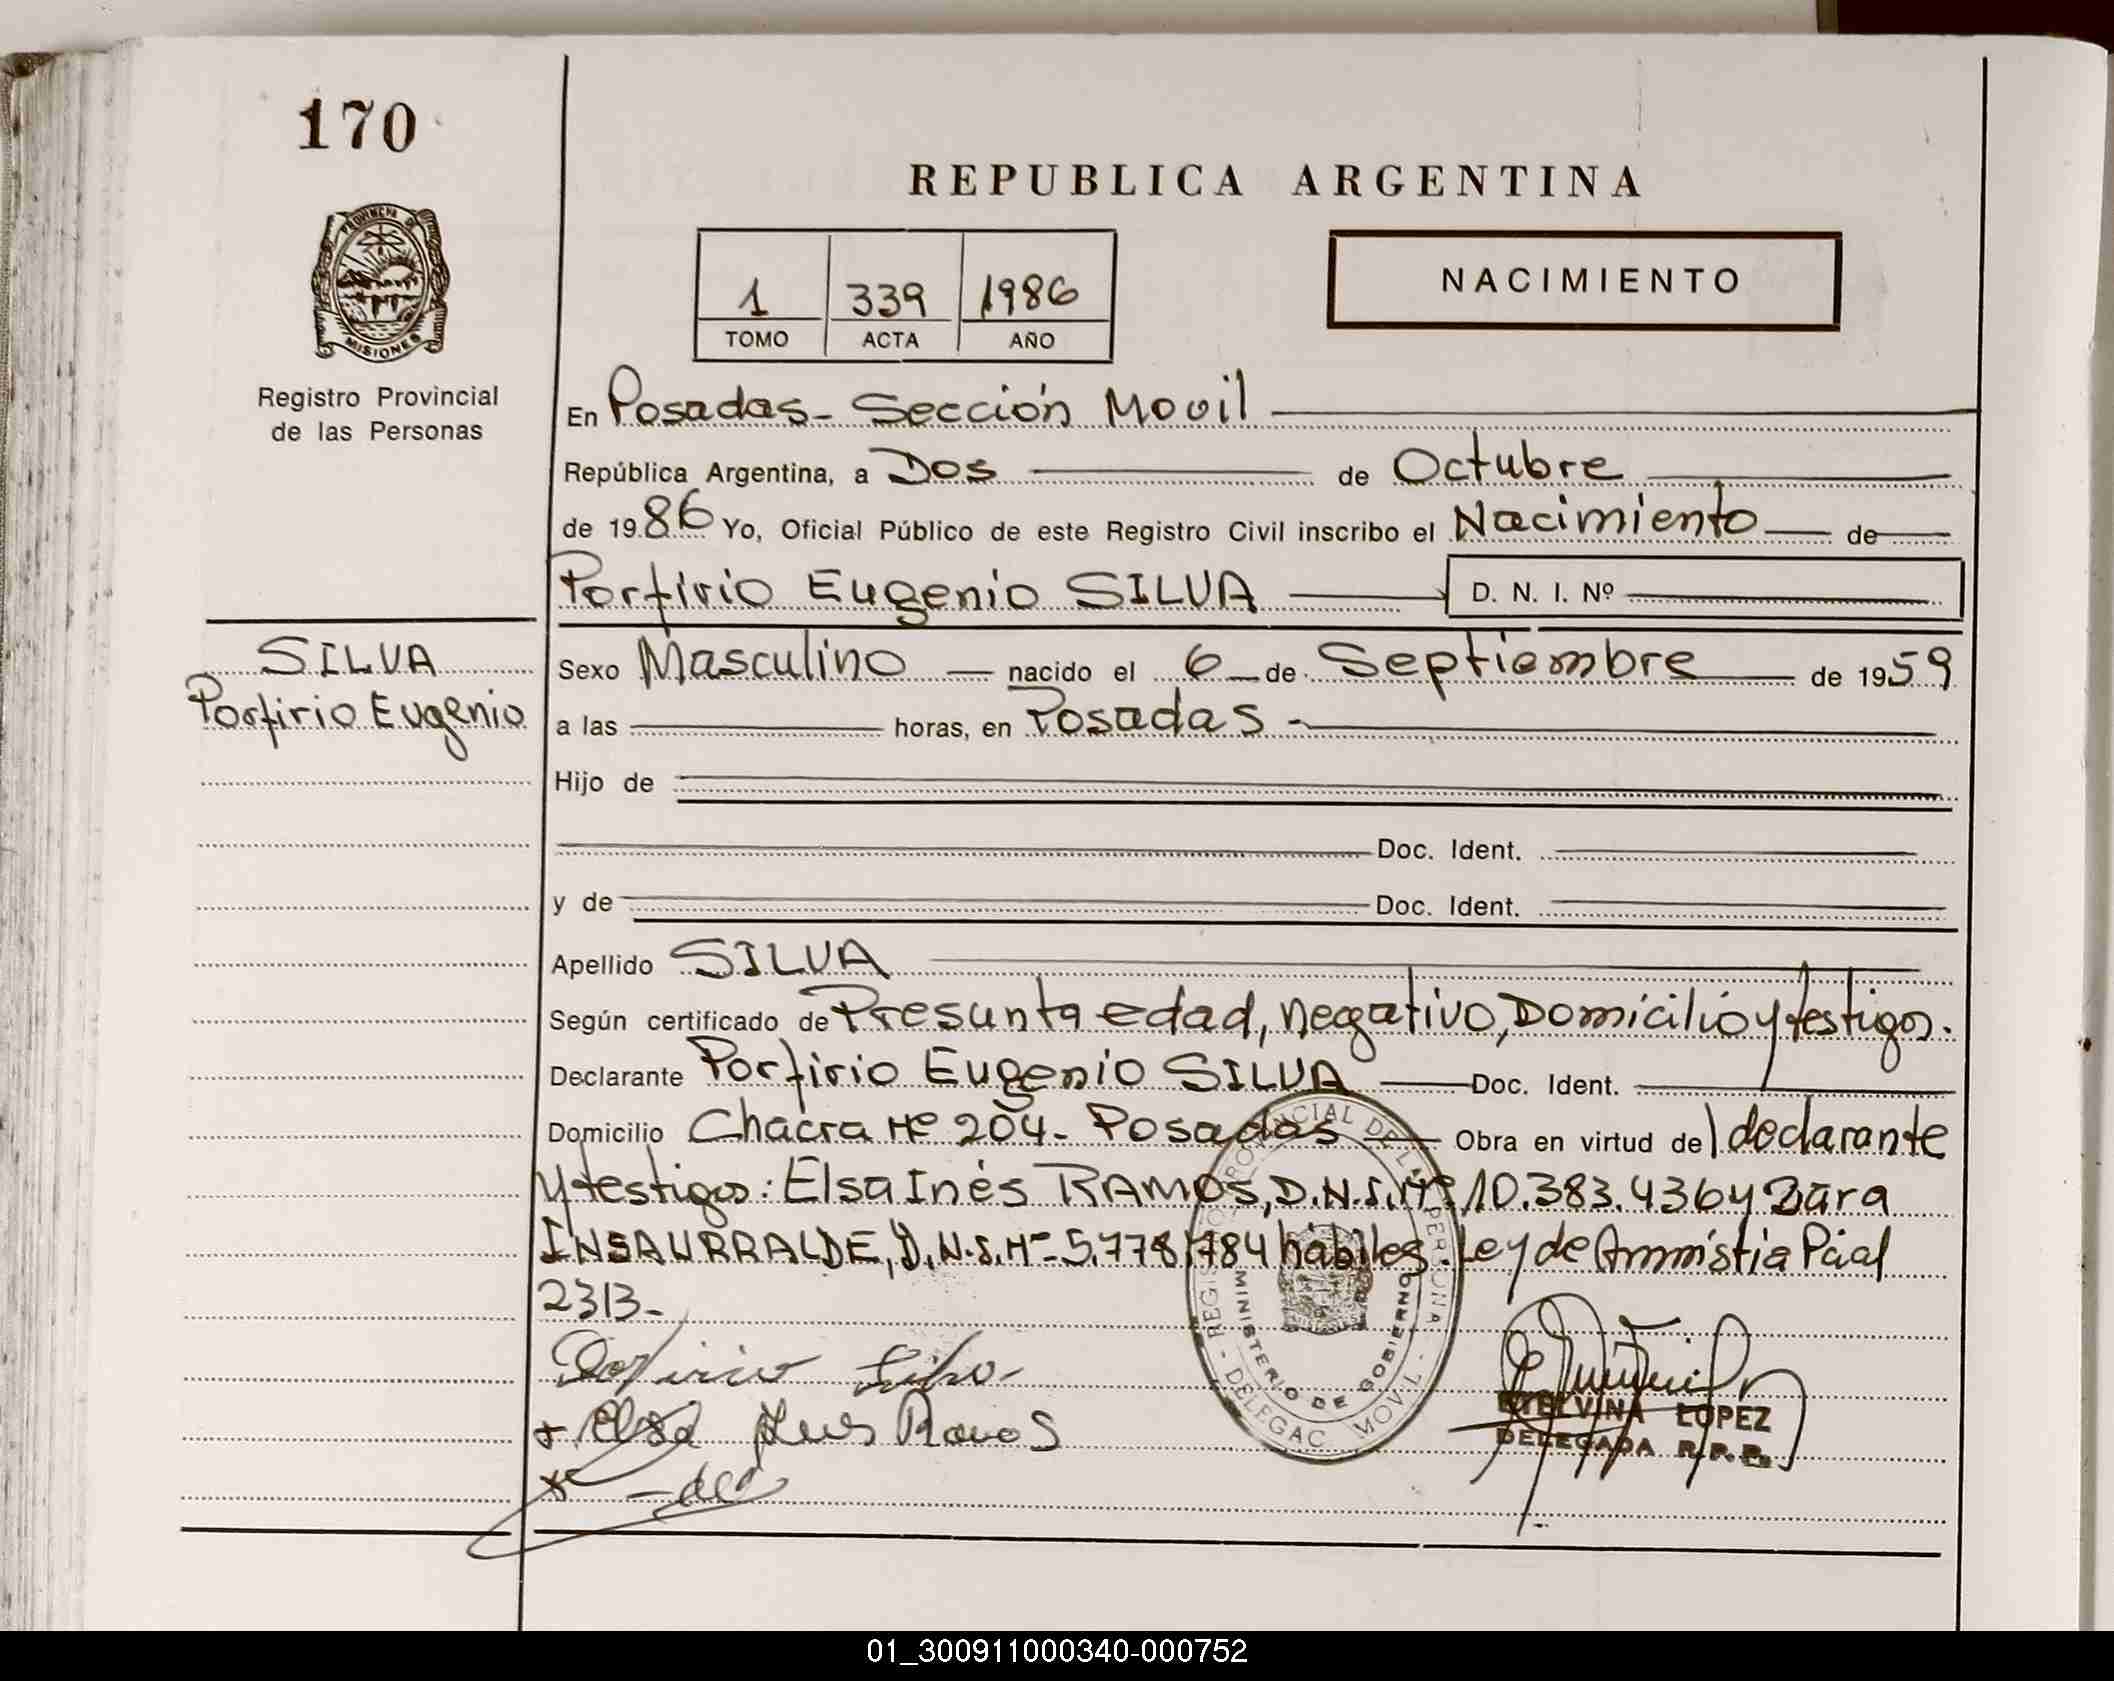 170
REPUBLICA ARGENTINA
PROVINCIA D
MISIONES
Registro Provincial
de las Personas
1 339 1986
TOMO ACTA AÑO
NACIMIENTO
En Posadas- Sección Movil
República Argentina, a Dos de Octubre
de 1986 Yo, Oficial Público de este Registro Civil inscribo el Nacimiento de
Porfirio Eugenio SILVA D. N. I. Nº
SILVA
Porfirio Eugenio
Sexo Masculino nacido el 6 de Septiembre de 1959
a las horas, en Posadas -
Hijo de
Doc. Ident.
y de Doc. Ident.
Apellido SILVA
Según certificado de Presunta edad, negativo, Domicilio y testigos.
Declarante Porfirio Eugenio SILVA Doc. Ident.
Domicilio Chacra Nº 204- Posadas Obra en virtud del declarante
y testigos: Elsa Inés RAMOS, D.N.I. Nº 10.383.436 y Zara
INSAURRALDE, D.N.I. Nº 5.778.784 hábiles. Ley de Ammistia Pcial
2313-
Porfirio Silva
+ Elsa Ines Ramos
x
REGISTRO PROVINCIAL DE LAS PERSONAS
MINISTERIO DE GOBIERNO
DELEGAC. MOVIL
ETELVINA LOPEZ
DELEGADA R.P.P.
01_300911000340-000752